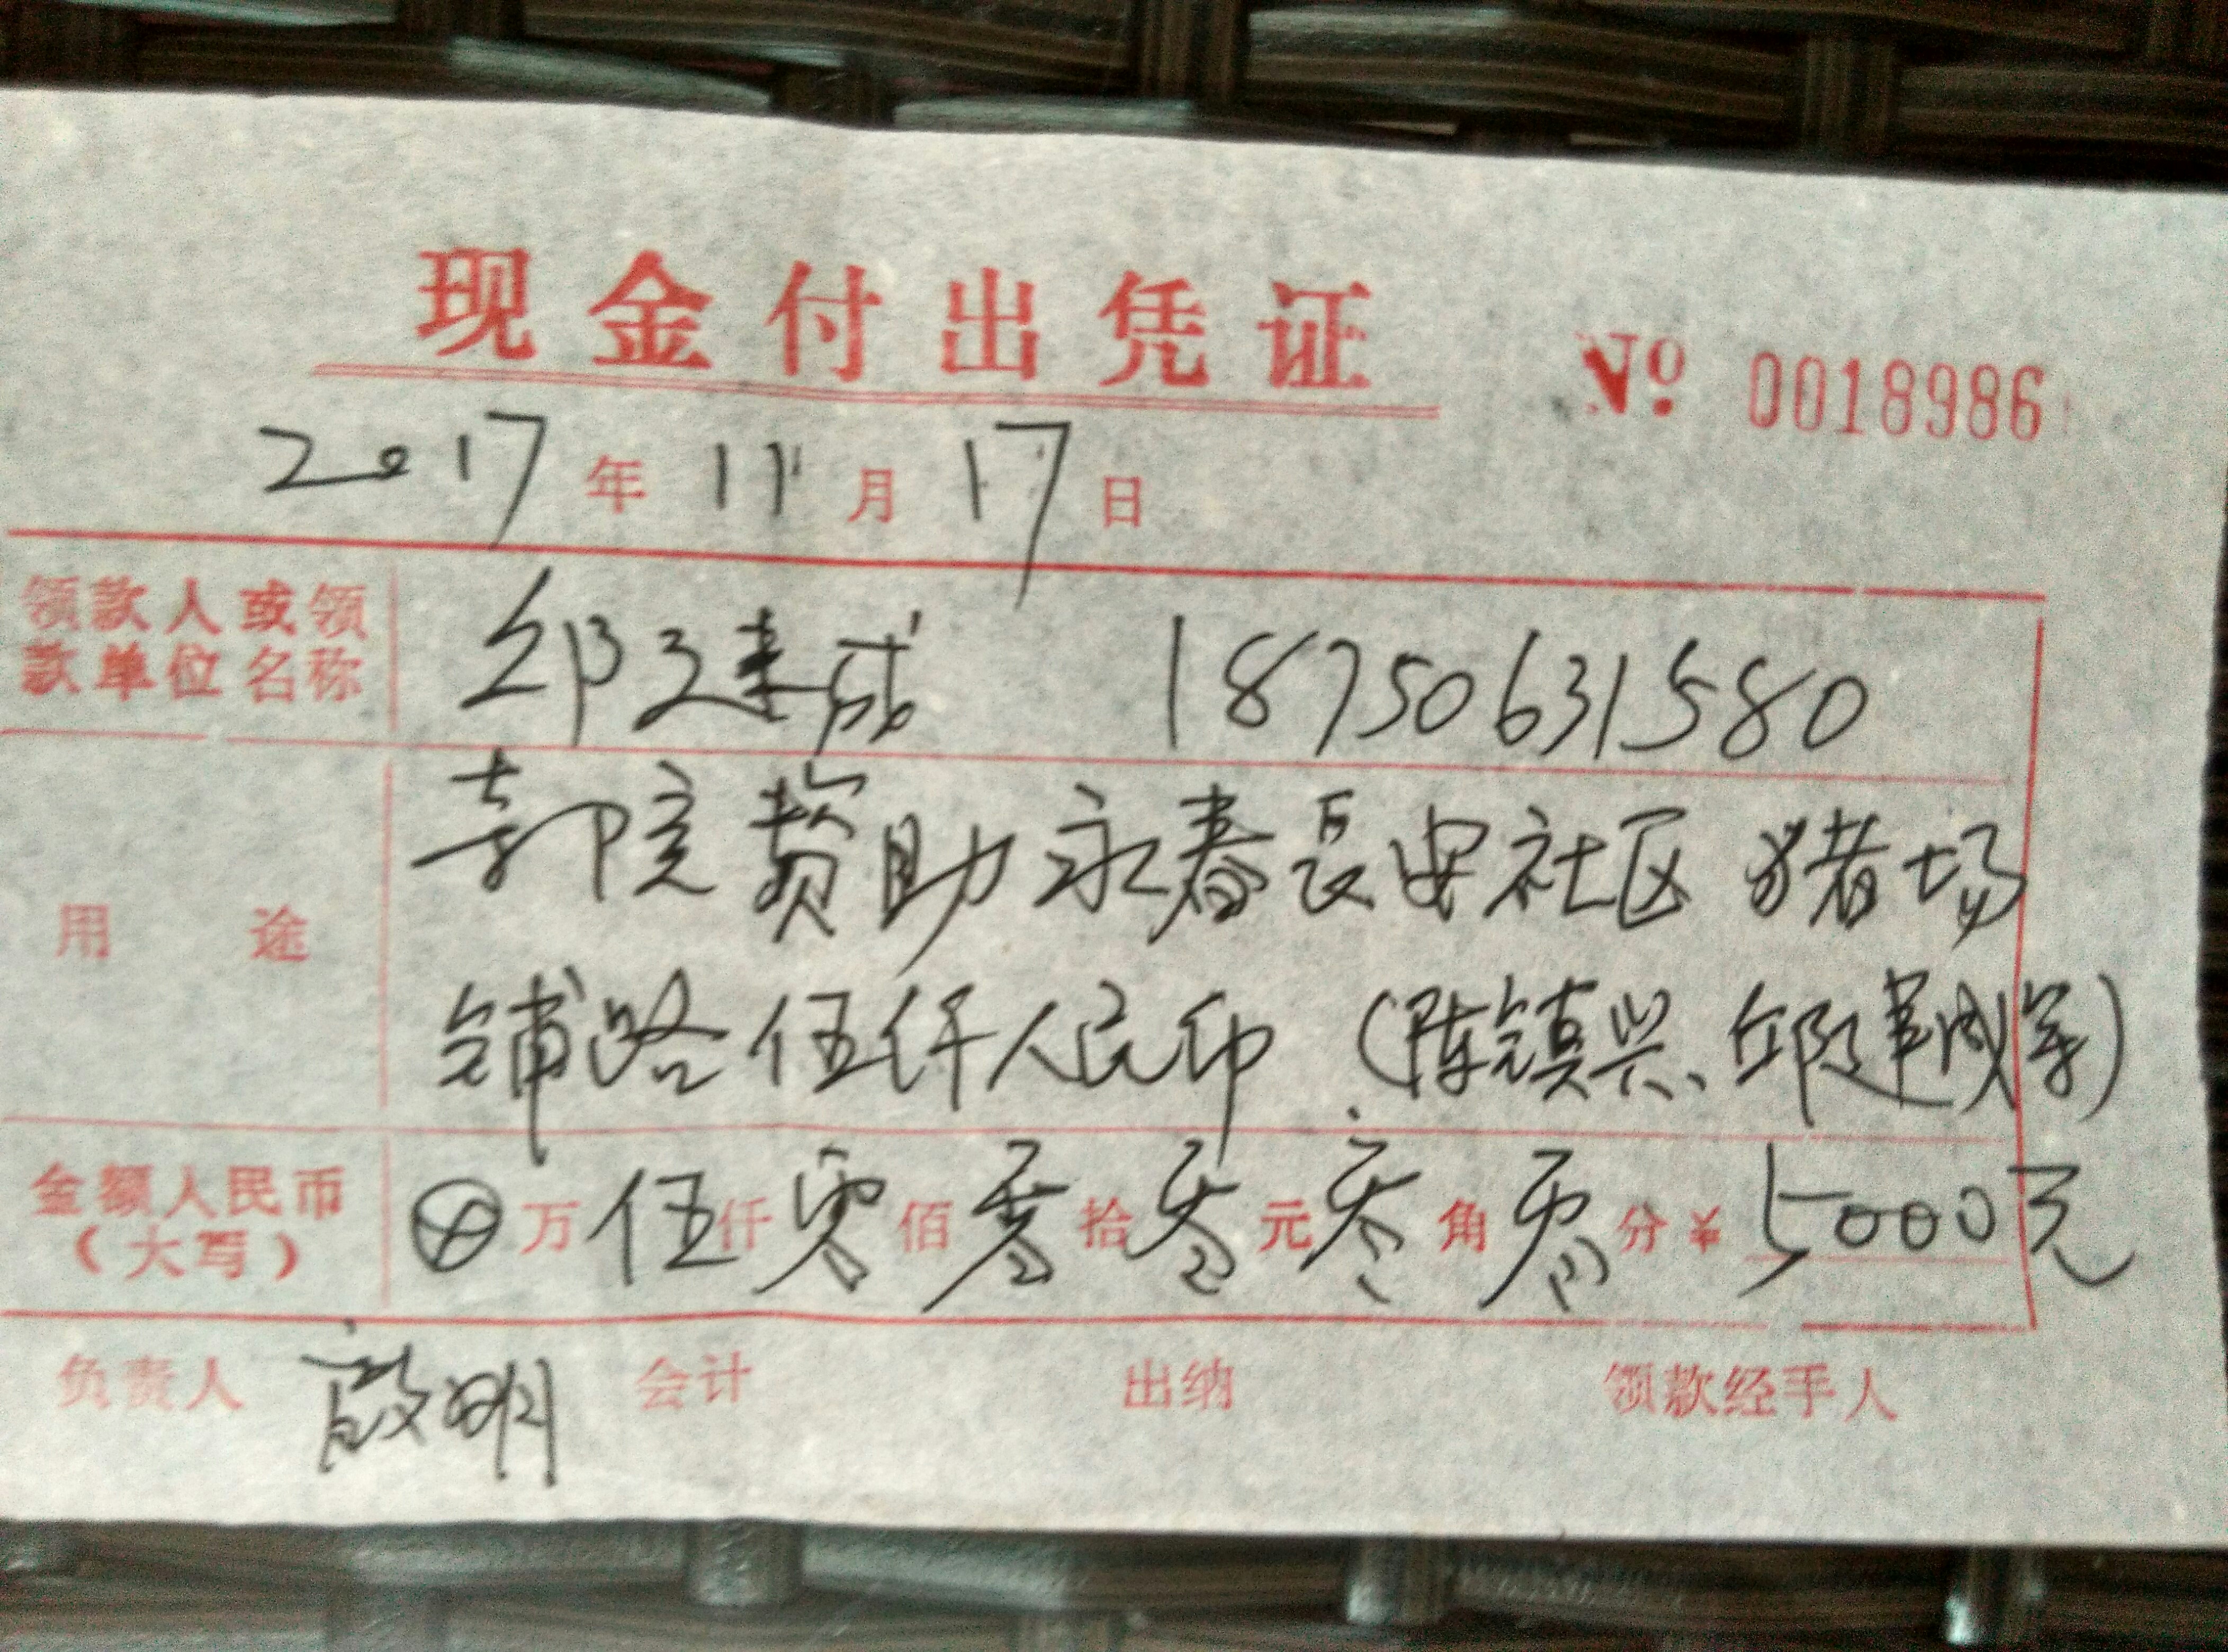 现金付出凭证 Nº 0018986
2017年11月17日
领款人或领
款单位名称
邱建成 18750631580
用途
郭院赞助永春長安社区猪场
铺路伍仟人民币(陈镇兴、邱建成等)
金额人民币
(大写)
⊗万伍仟零佰零拾零元零角零分¥5000元
负责人 啟明 会计 出纳 领款经手人